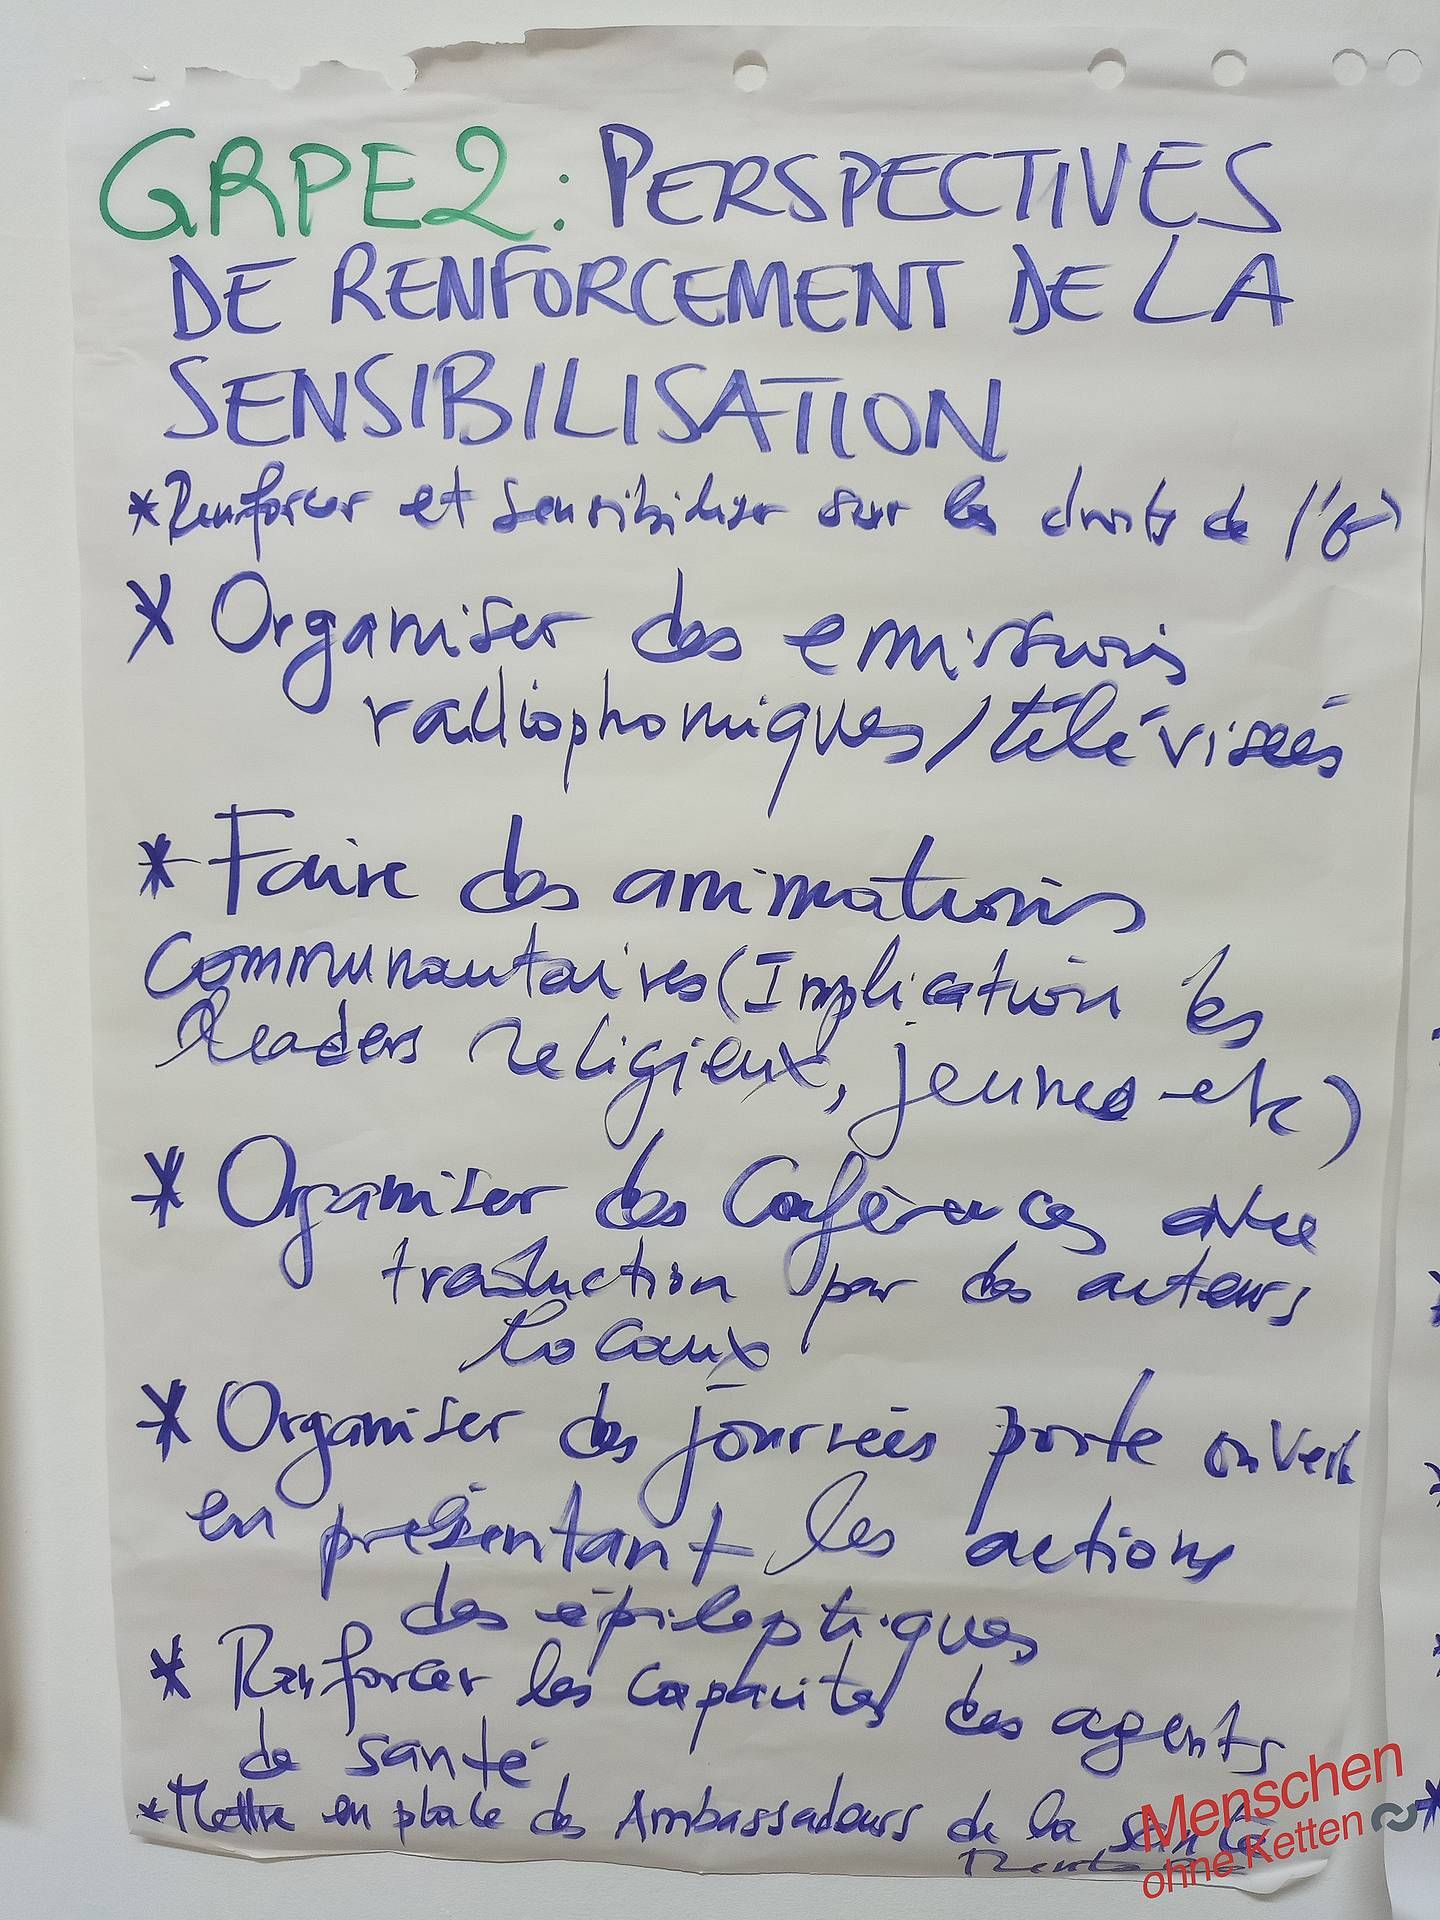 GRPE2: PERSPECTIVES
DE RENFORCEMENT DE LA
SENSIBILISATION
* Renforcer et sensibiliser sur les droits de l'
* Organiser des emissions
radiophoniques/télévisées
* Faire des animations
communautaires (Implication les
leaders religieux, jeunes etc)
* Organiser des Conférences avec
traduction par des acteurs
locaux
* Organiser des journées porte ouvert
en présentant les actions
des épileptiques
* Renforcer les capacités des agents
de santé
* Mettre en place des Ambassadeurs de la santé
Menschen
ohne Ketten